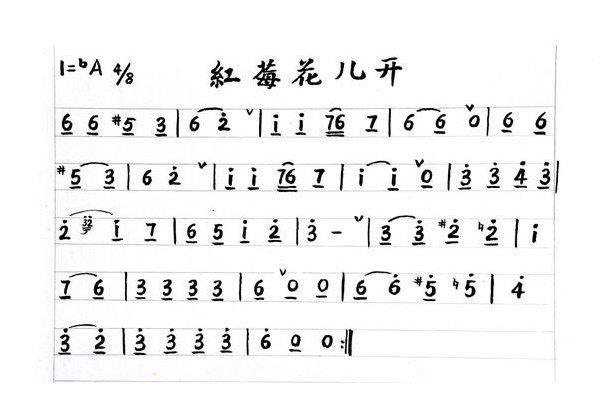 1=♭A 4/8 紅莓花儿开
6 6 #5 3 | 6 2̇ ∨ | i i 76 7 | 6 6 ∨ 0 | 6 6
#5 3 | 6 2̇ ∨ | i i 76 7 | i i ∨ 0 | 3̇ 3̇ 4̇ 3̇ |
2̇ 3̇2̇ i 7 | 6 5 i 2̇ | 3̇ – ∨ | 3̇ 3̇ #2̇ ♮2̇ | i
7 6 | 3 3 3 3 | 6 ∨ 0 0 | 6 6̇ #5̇ ♮5̇ | 4̇
3̇ 2̇ | 3̇ 3̇ 3̇ 3̇ | 6̇ 0 0 :||